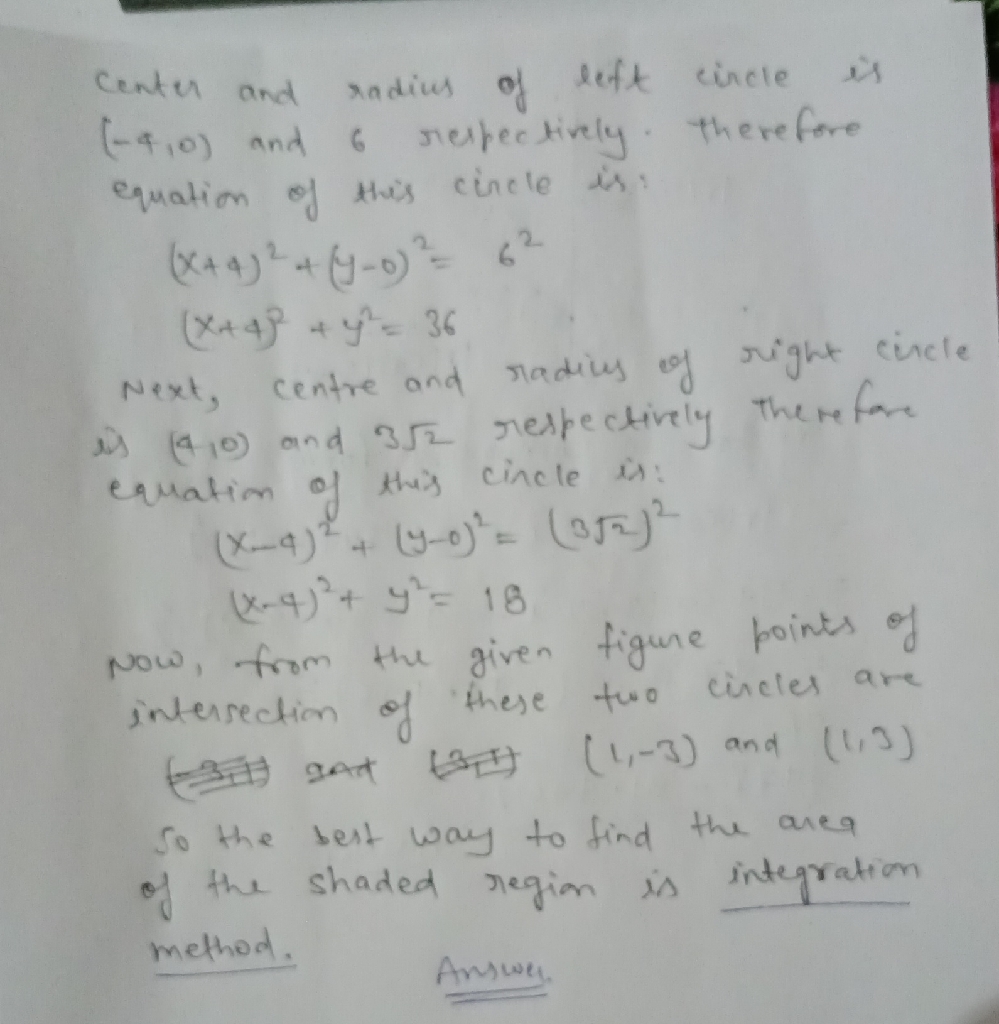 Center and radius of left circle is
(-4,0) and 6 respectively. Therefore
equation of this circle is:
(x+4)² + (y-0)² = 6²
(x+4)² + y² = 36
Next, centre and radius of right circle
is (4,0) and 3√2 respectively Therefore
equation of this circle is:
(x-4)² + (y-0)² = (3√2)²
(x-4)² + y² = 18
Now, from the given figure points of
intersection of these two circles are
and (1,-3) and (1,3)
So the best way to find the area
of the shaded region is integration
method.
Answer.